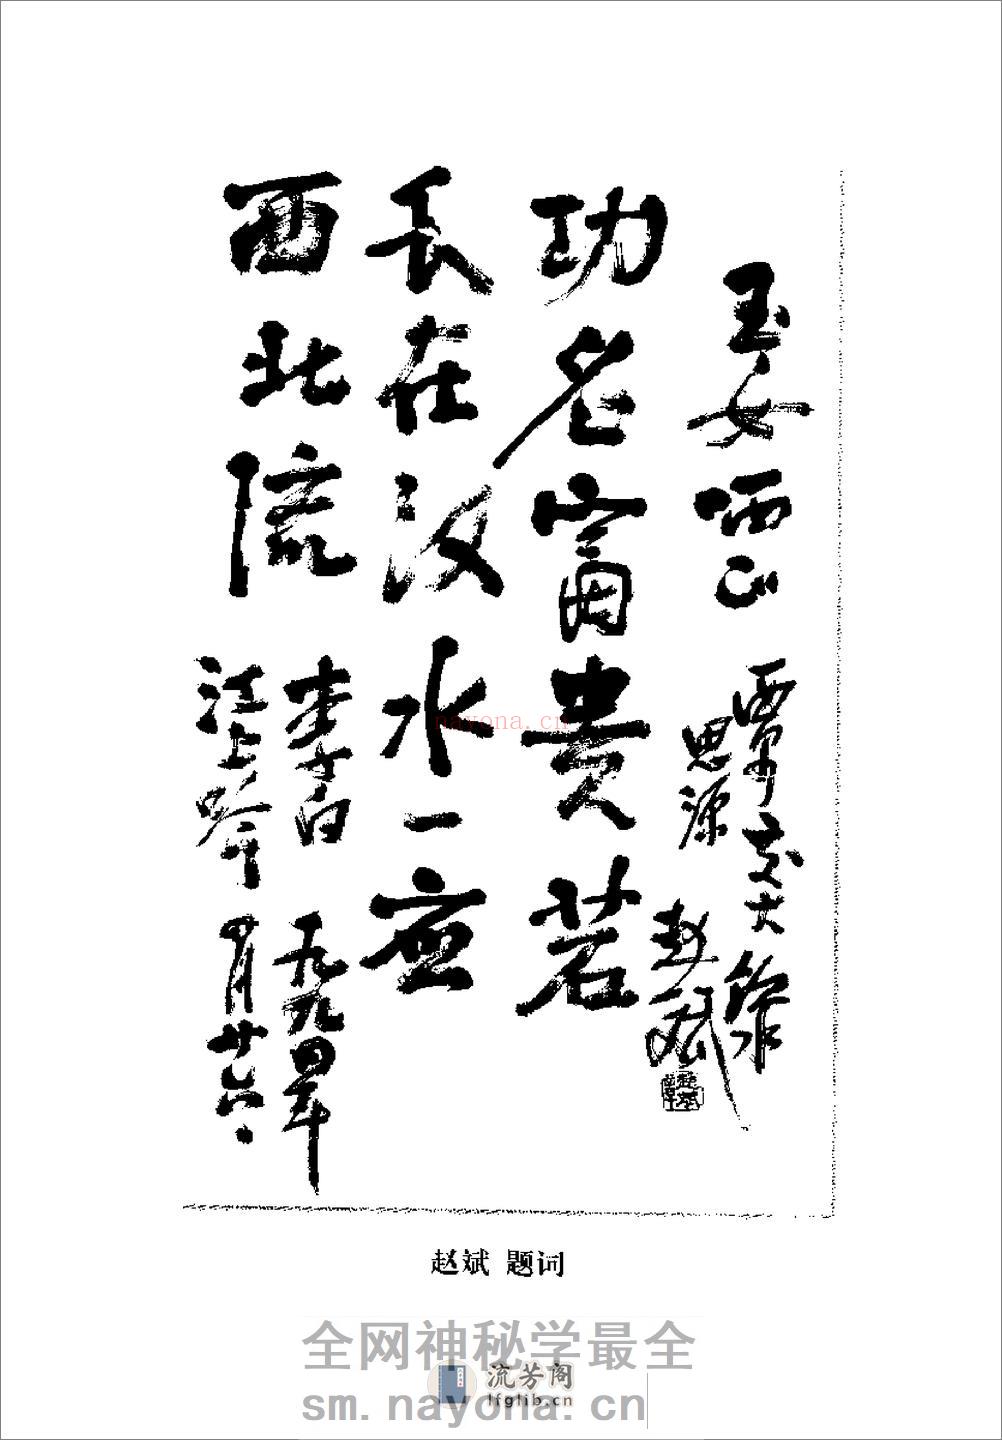 玉女哂正
功名富贵若
长在汉水一应
西北流
李白
江上吟
一九九四年
四月廿六
交大
思源
赵斌
赵斌 题词
nayona.cn
全网神秘学最全
流芳阁
lfglib.cn
sm.nayona.cn